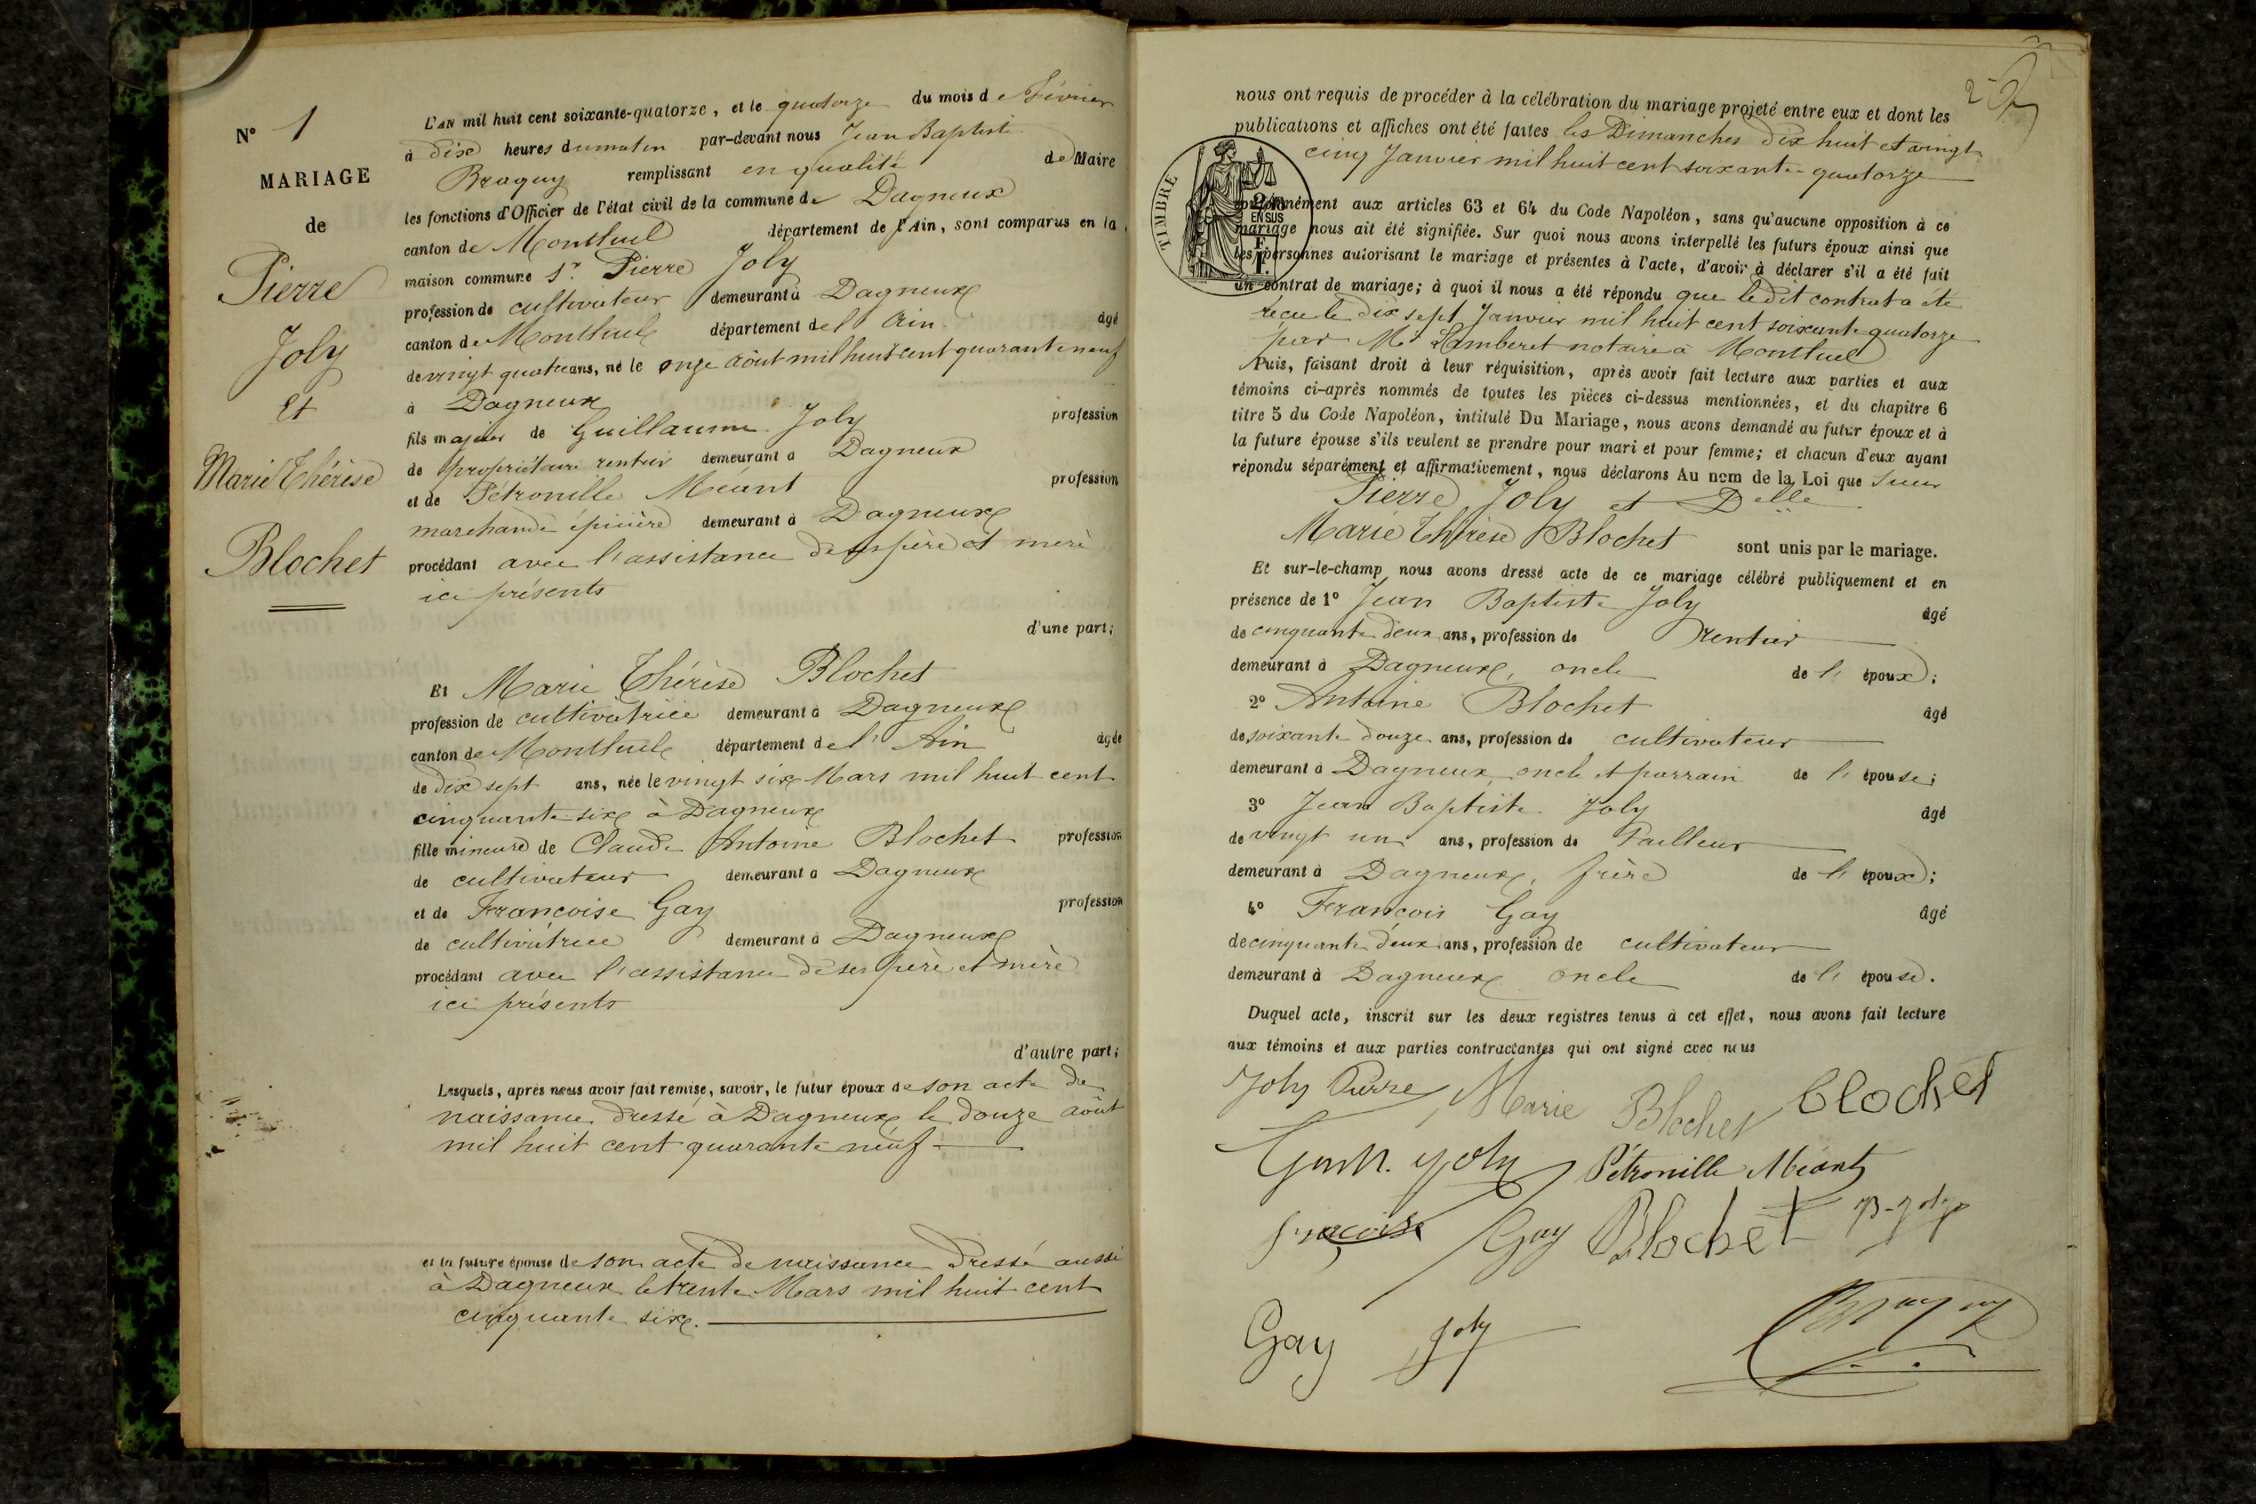 N° 1
MARIAGE
de
Pierre
Joly
Et
Marie Thérèse
Blochet
L'AN mil huit cent soixante-quatorze, et le quatorze du mois de Février
à dix heures du matin par-devant nous Jean Baptiste
Braguy remplissant en qualité de Maire
les fonctions d'Officier de l'état civil de la commune de Dagneux
canton de Montluel département de l'Ain, sont comparus en la
maison commune Sr. Pierre Joly
profession de cultivateur demeurant à Dagneux
canton de Montluel département de l'Ain âgé
de vingt quatre ans, né le onze août mil huit cent quarante neuf
à Dagneux
fils majeur de Guillaume Joly profession
de propriétaire rentier demeurant à Dagneux
et de Pétronille Méant profession
marchande épicière demeurant à Dagneux
procédant avec l'assistance de ses père et mère
ici présents
d'une part;
Et Marie Thérèse Blochet
profession de cultivatrice demeurant à Dagneux
canton de Montluel département de l'Ain âgée
de dix sept ans, née le vingt six Mars mil huit cent
cinquante six à Dagneux
fille mineure de Claude Antoine Blochet profession
de cultivateur demeurant à Dagneux
et de Francoise Gay profession
de cultivatrice demeurant à Dagneux
procédant avec l'assistance de ses père et mère
ici présents
d'autre part;
Lesquels, après nous avoir fait remise, savoir, le futur époux de son acte de
naissance dressé à Dagneux le douze août
mil huit cent quarante neuf
et la future épouse de son acte de naissance dressé aussi
à Dagneux le trente Mars mil huit cent
cinquante six.
2
nous ont requis de procéder à la célébration du mariage projeté entre eux et dont les
publications et affiches ont été faites les Dimanches dix huit et vingt
cinq Janvier mil huit cent soixante-quatorze
TIMBRE
EN SUS
conformément aux articles 63 et 64 du Code Napoléon, sans qu'aucune opposition à ce
mariage nous ait été signifiée. Sur quoi nous avons interpellé les futurs époux ainsi que
les personnes autorisant le mariage et présentes à l'acte, d'avoir à déclarer s'il a été fait
un contrat de mariage; à quoi il nous a été répondu que le dit contrat a été
reçu le dix sept Janvier mil huit cent soixante quatorze
par Me Lamberet notaire à Montluel
Puis, faisant droit à leur réquisition, après avoir fait lecture aux parties et aux
témoins ci-après nommés de toutes les pièces ci-dessus mentionnées, et du chapitre 6
titre 5 du Code Napoléon, intitulé Du Mariage, nous avons demandé au futur époux et à
la future épouse s'ils veulent se prendre pour mari et pour femme; et chacun d'eux ayant
répondu séparément et affirmativement, nous déclarons Au nom de la Loi que Sieur
Pierre Joly et Delle
Marie Thérèse Blochet sont unis par le mariage.
Et sur-le-champ nous avons dressé acte de ce mariage célébré publiquement et en
présence de 1° Jean Baptiste Joly âgé
de cinquante deux ans, profession de rentier
demeurant à Dagneux, oncle de l' époux;
2° Antoine Blochet âgé
de soixante douze ans, profession de cultivateur
demeurant à Dagneux, oncle et parrain de l' épouse;
3° Jean Baptiste Joly âgé
de vingt un ans, profession de Tailleur
demeurant à Dagneux, frère de l' époux;
4° Francois Gay âgé
de cinquante deux ans, profession de cultivateur
demeurant à Dagneux oncle de l' épouse.
Duquel acte, inscrit sur les deux registres tenus à cet effet, nous avons fait lecture
aux témoins et aux parties contractantes qui ont signé avec nous
Joly Pierre Marie Blochet blochet
Joly Pétronille Méant
Gay Blochet Joly
Gay Joly Braguy